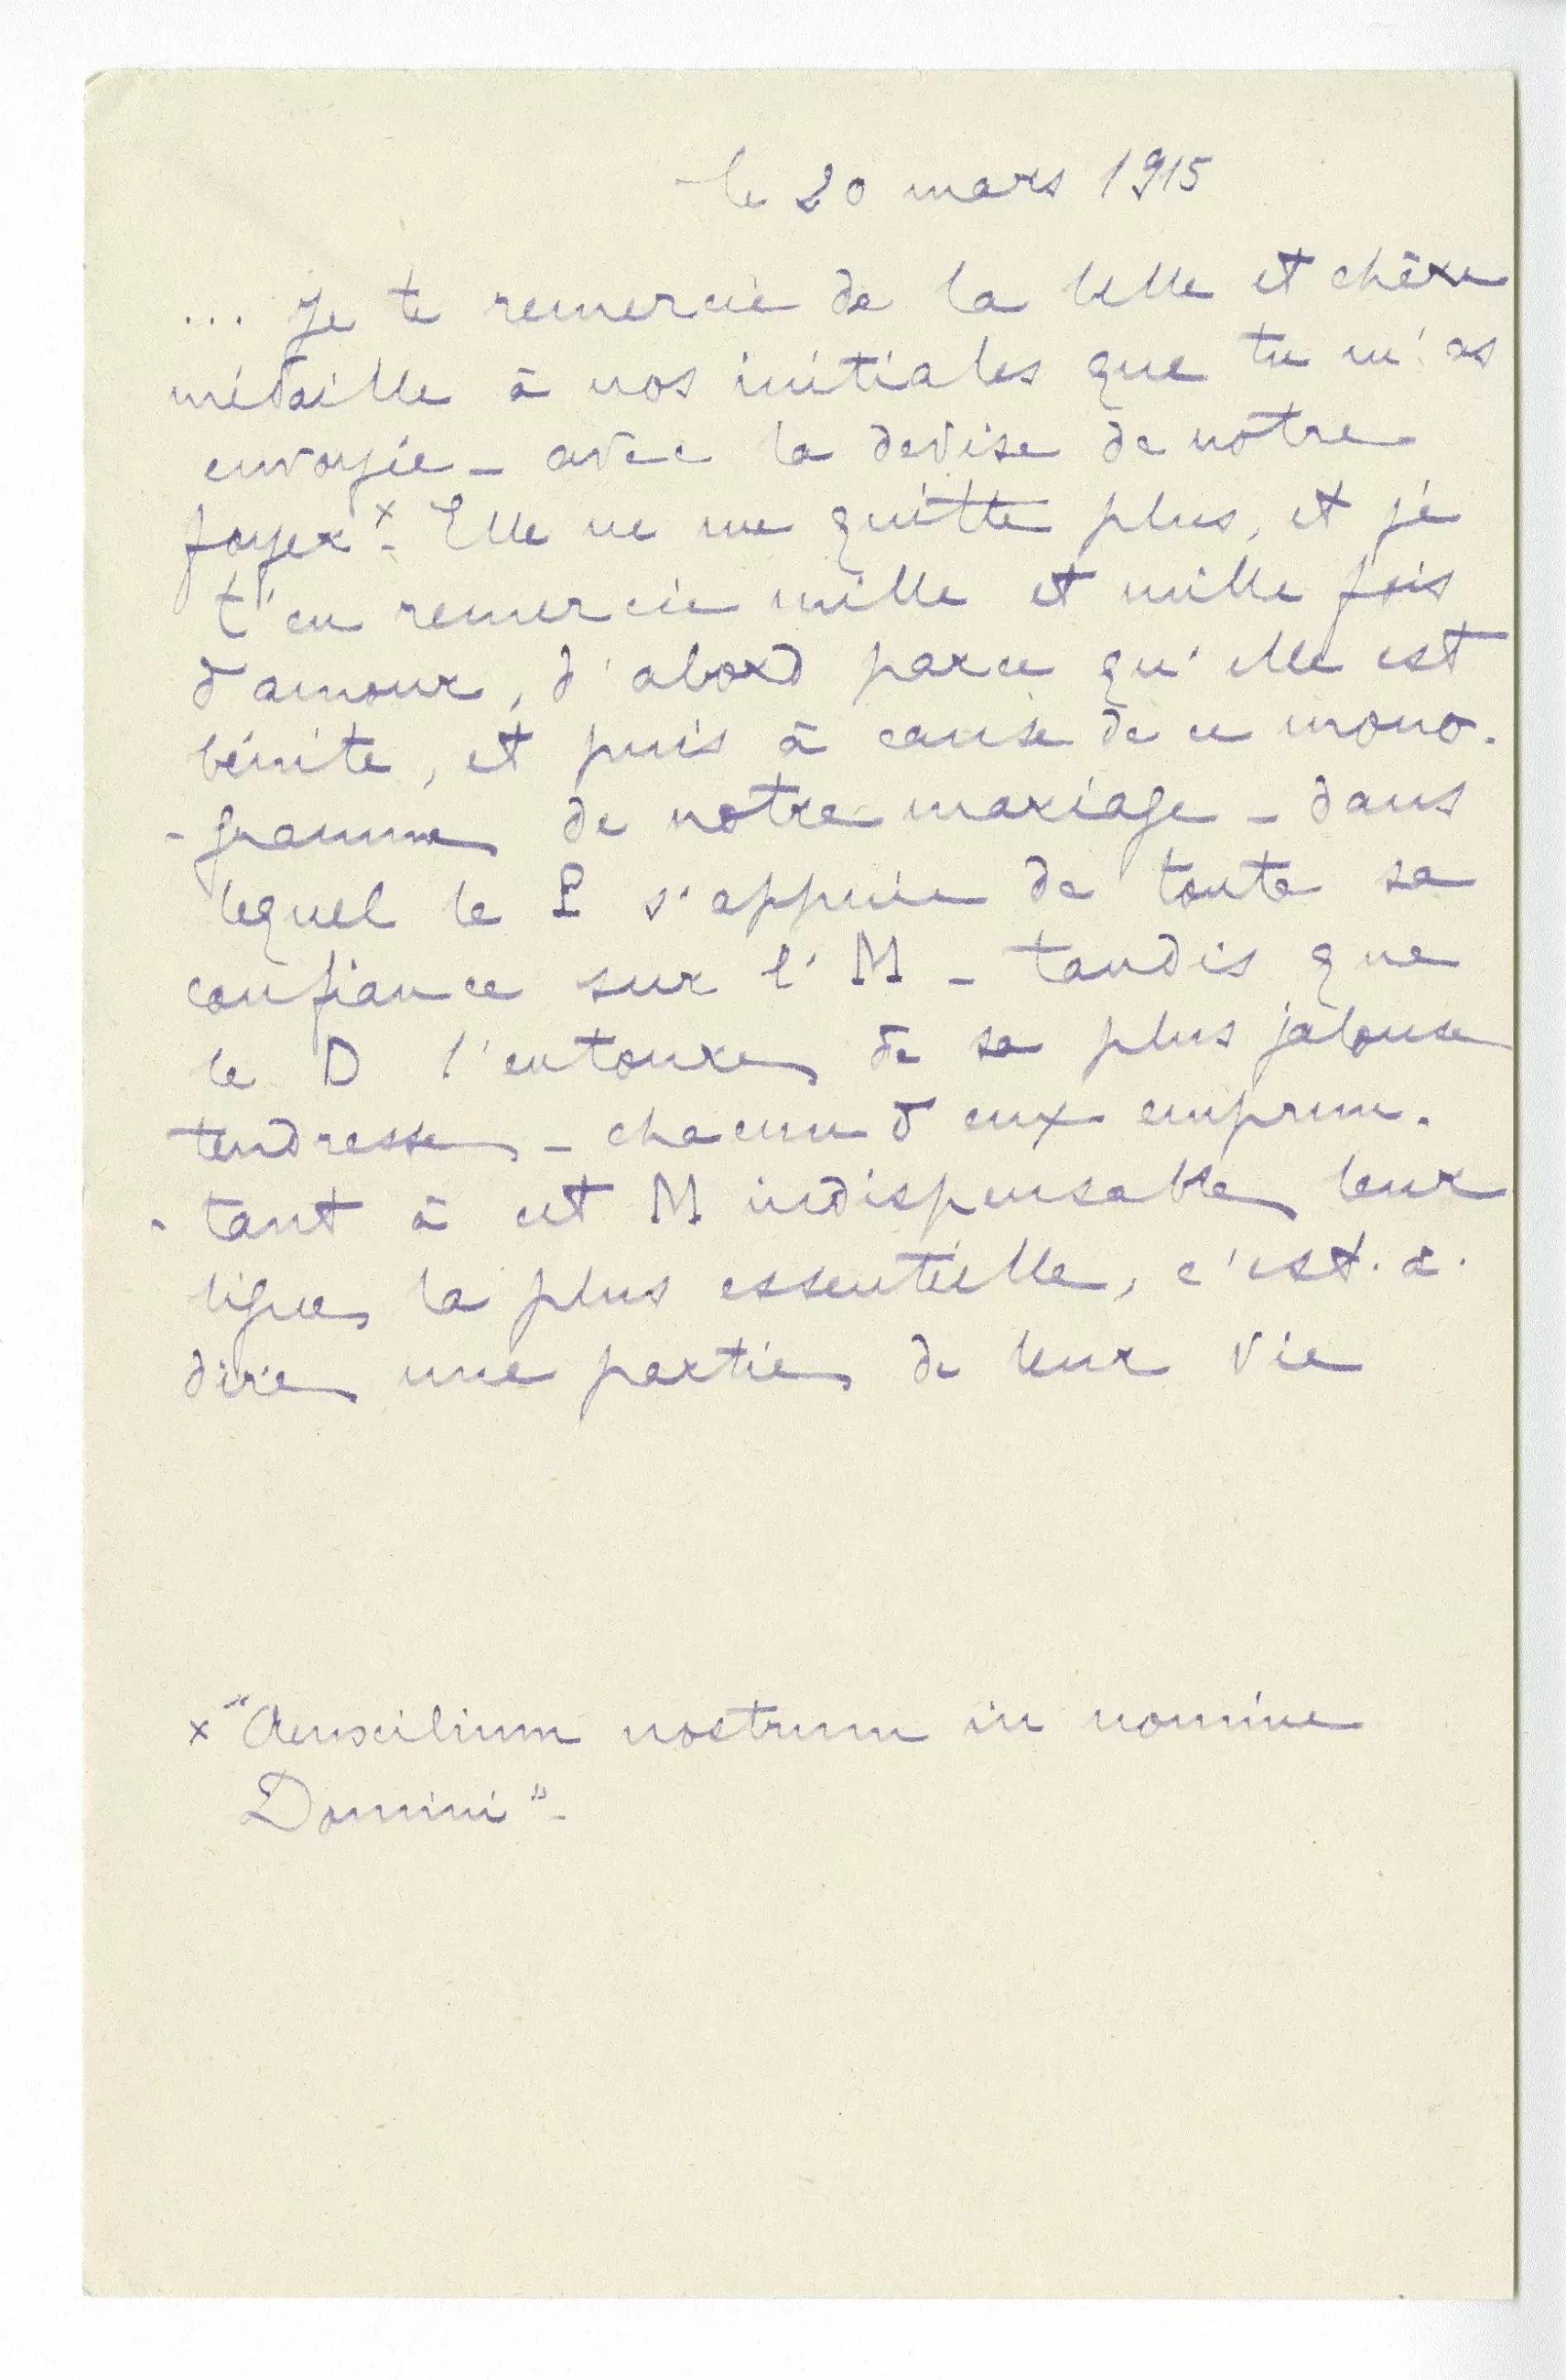 le 20 mars 1915
... Je te remercie de la belle et chère
médaille à nos initiales que tu m'as
envoyée - avec la devise de notre
foyer x. Elle ne me quitte plus, et je
t'en remercie mille et mille fois
d'amour, d'abord parce qu'elle est
bénite, et puis à cause de ce mono-
-gramme de notre mariage - dans
lequel le P s'appuie de toute sa
confiance sur l'M - tandis que
le D l'entoure de sa plus jalouse
tendresse - chacun d'eux emprun-
-tant à cet M indispensable leur
ligne la plus essentielle, c'est-à-
dire une partie de leur vie
x "Auxilium nostrum in nomine
Domini" -